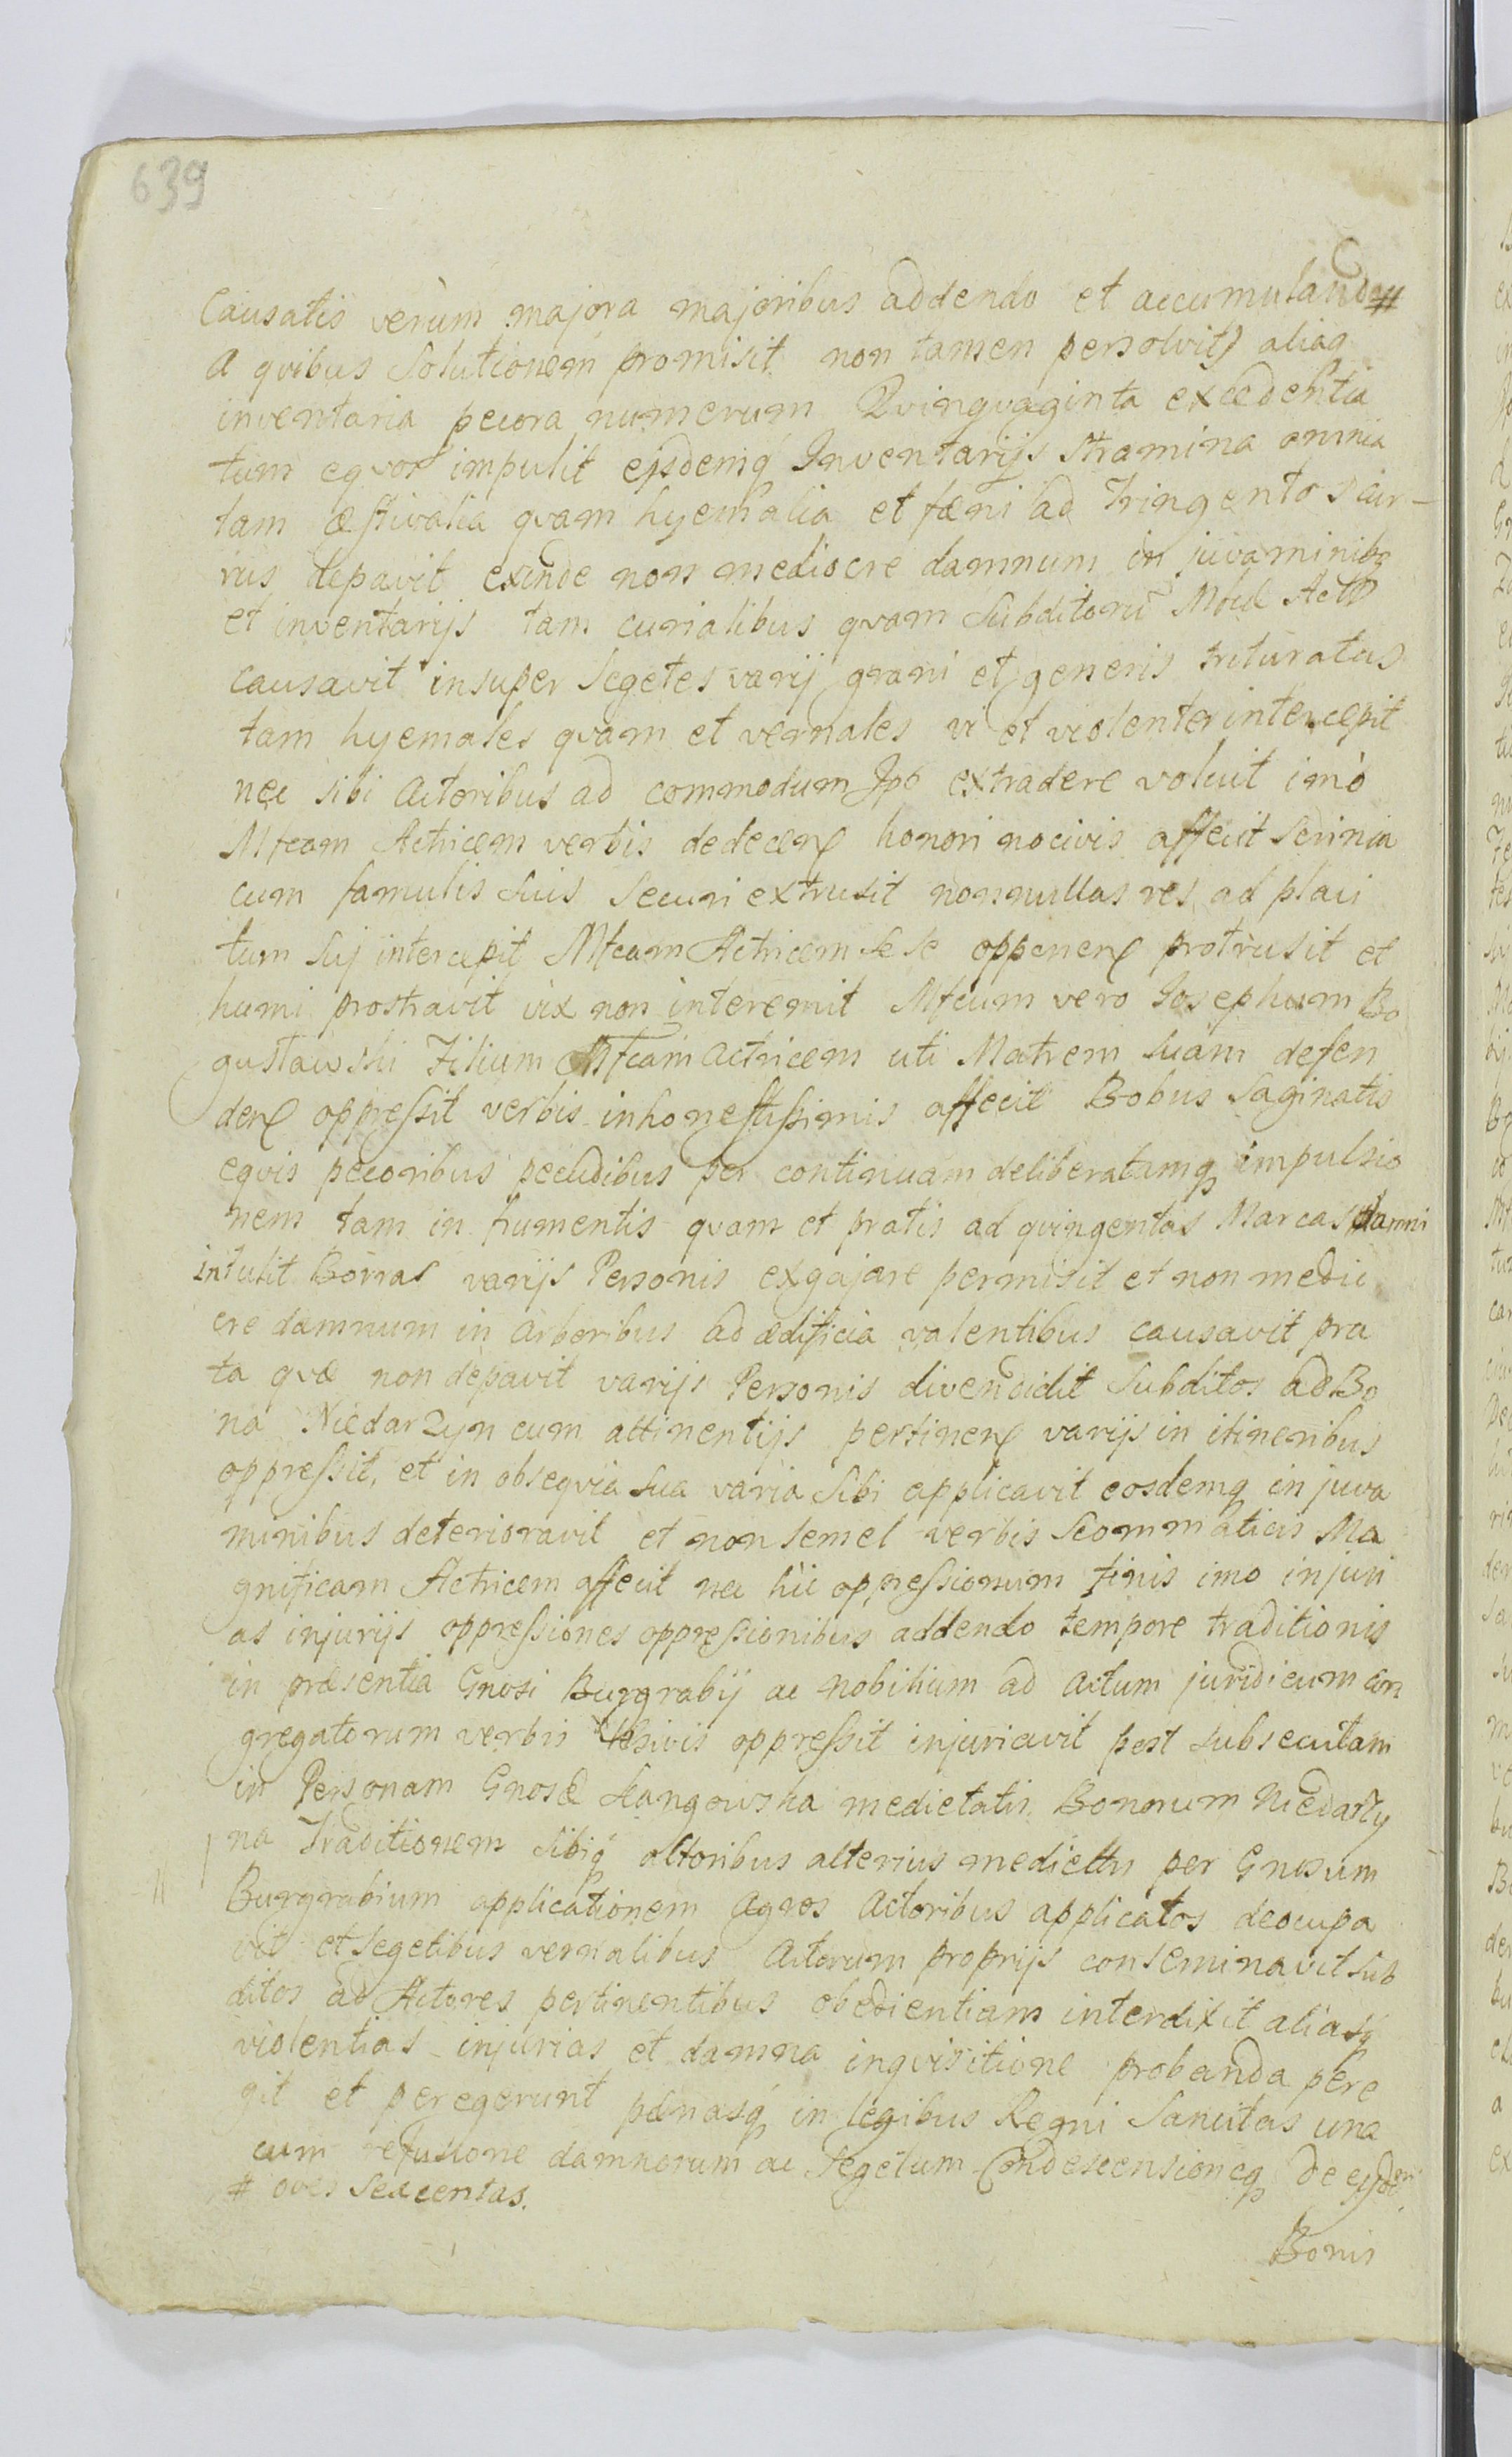 639
Causatis verùm majora majoribus addendo et accumulando #
a qvibus Solutionem promisit non tamen persolvit aliaq
inventaria pecora numerum Qvinqvaginta excedentia
tum eqvos impulit ejsdemq Inventarijs Stramina omnia
tam æstivalia qvam hyemalia et fæni ad Tringentos cur-
rus depavit exinde non mediocre damnum in juvaminibq
et inventarijs tam curialibus qvam Subditorũ
causavit insuper Segetes varij grani et generis trituratas
tam hyemales qvam et vernales vi et violenter intercepit
nec sibi Actoribus ad commodum Ipõ extradere voluit imò
Mfcam Actricem verbis dedecen honori nocivis affecit Scrinia
cum famulis Suis Securi extrusit nonnullas res ad placi
tum Suj intercepit Mfcam Actricem Se se opponen protrusit et
humi prostravit vix non interemit Mfcum vero Josephum Bo
gustawski Filium Mfcam Actricem uti Matrem Suam defen
den oppressit verbis inhonestissimis affecit Bobus Saginatis
eqvis pecoribus pecudibus per continuam deliberatamq impulsio
nem tam in frumentis qvam et pratis ad qvingentas Marcas damni
intulit Borras varijs Personis exgajare permisit et non medio
cre damnum in Arboribus ad ædificia valentibus causavit pra
ta qvæ non depavit varijs Personis divendidit Subditos ad Bo
na Niedarzyn cum attinentijs pertinen varijs in itineribus
oppressit, et in obseqvia Sua varia Sibi applicavit eosdemq in juva
minibus deterioravit et non semel verbis Scommaticis Ma
gnificam Actricem affecit nec hic oppressionum finis imo injuri
as injurijs oppressiones oppressionibus addendo tempore traditionis
in præsentia Gnosi Burgrabij ac Nobilium ad Actum juridicum con
gregatorum verbis læsivis oppressit injuriavit post subsecutam
in Personam Gnosæ medietatis Bonorum Niedarzy
na Traditionem Sibiq Actoribus alterius mediettis per Gnosum
Burgrabium applicationem Agros Actoribus applicatos deocupa
vit et Segetibus vernalibus Actorum proprijs conseminavit Sub
ditos ad Actores pertinentibus obedientiam interdixit aliasq
violentias injurias et damna inqvisitione probanda pere
git et peregerunt pænasq in legibus Regni Sancitas una
cum refusione damnorum ac Segetum Condescensioneq de ejsdem
# oves Sexcentas.
Bonis